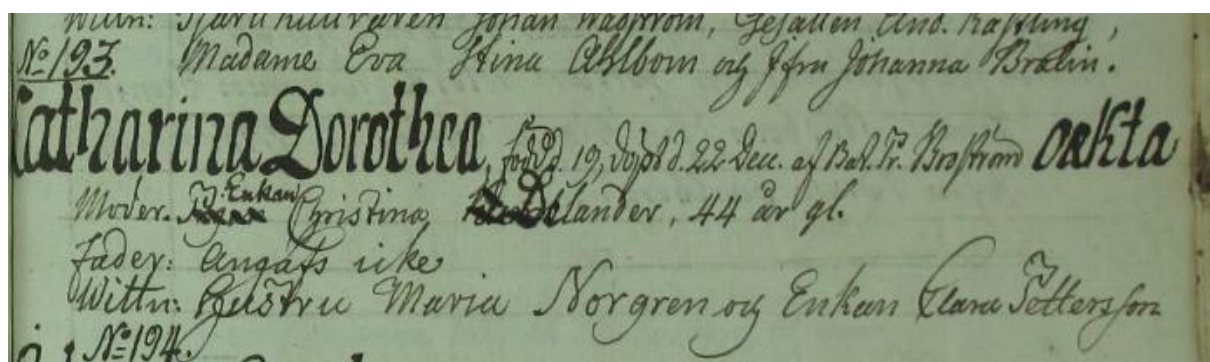 Wittn: Johan Wadström, Gesällen And.
No 193. Madame Eva Stina Ahlbom og Jfru Johanna Bralin.
Catharina Dorothea, född d. 19, döpt d. 22 Dec. af Bat. Pr. Broström oekta
Moder. Enkan Christina Delander, 44 år gl.
Fader: Angafs icke
Wittn: Hustru Maria Norgren og Enkan Clara Pettersson
No 194.